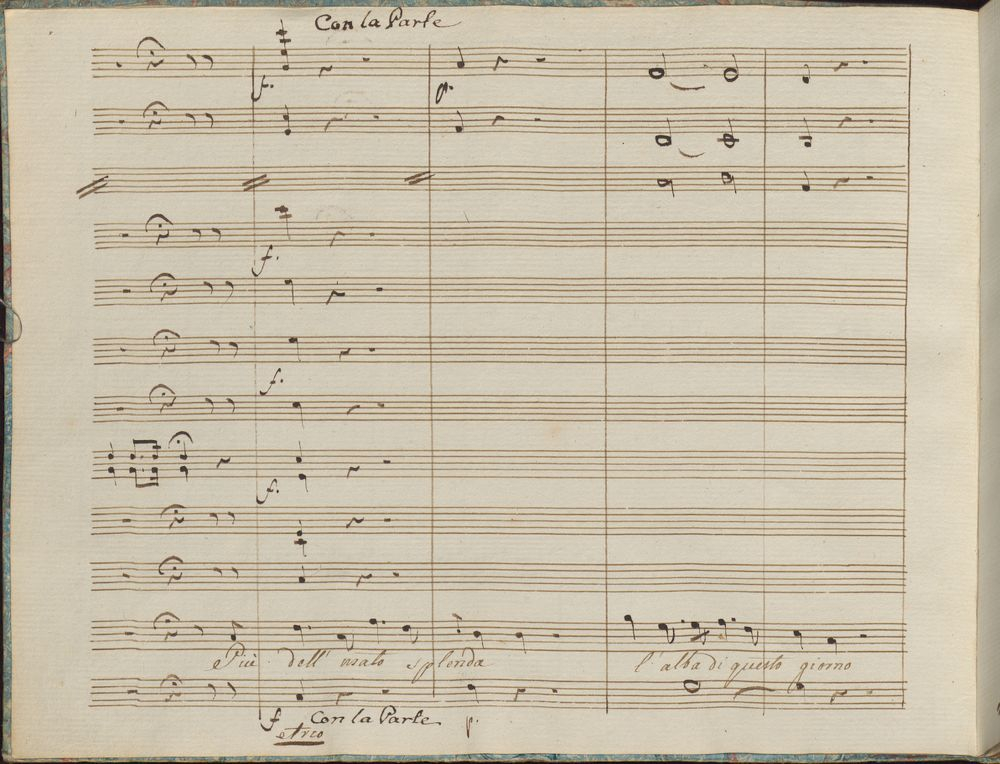 Con la Parte
f. p.
f.
f.
f.
Più dell' usato splenda l'alba di questo giorno
f Con la Parte p.